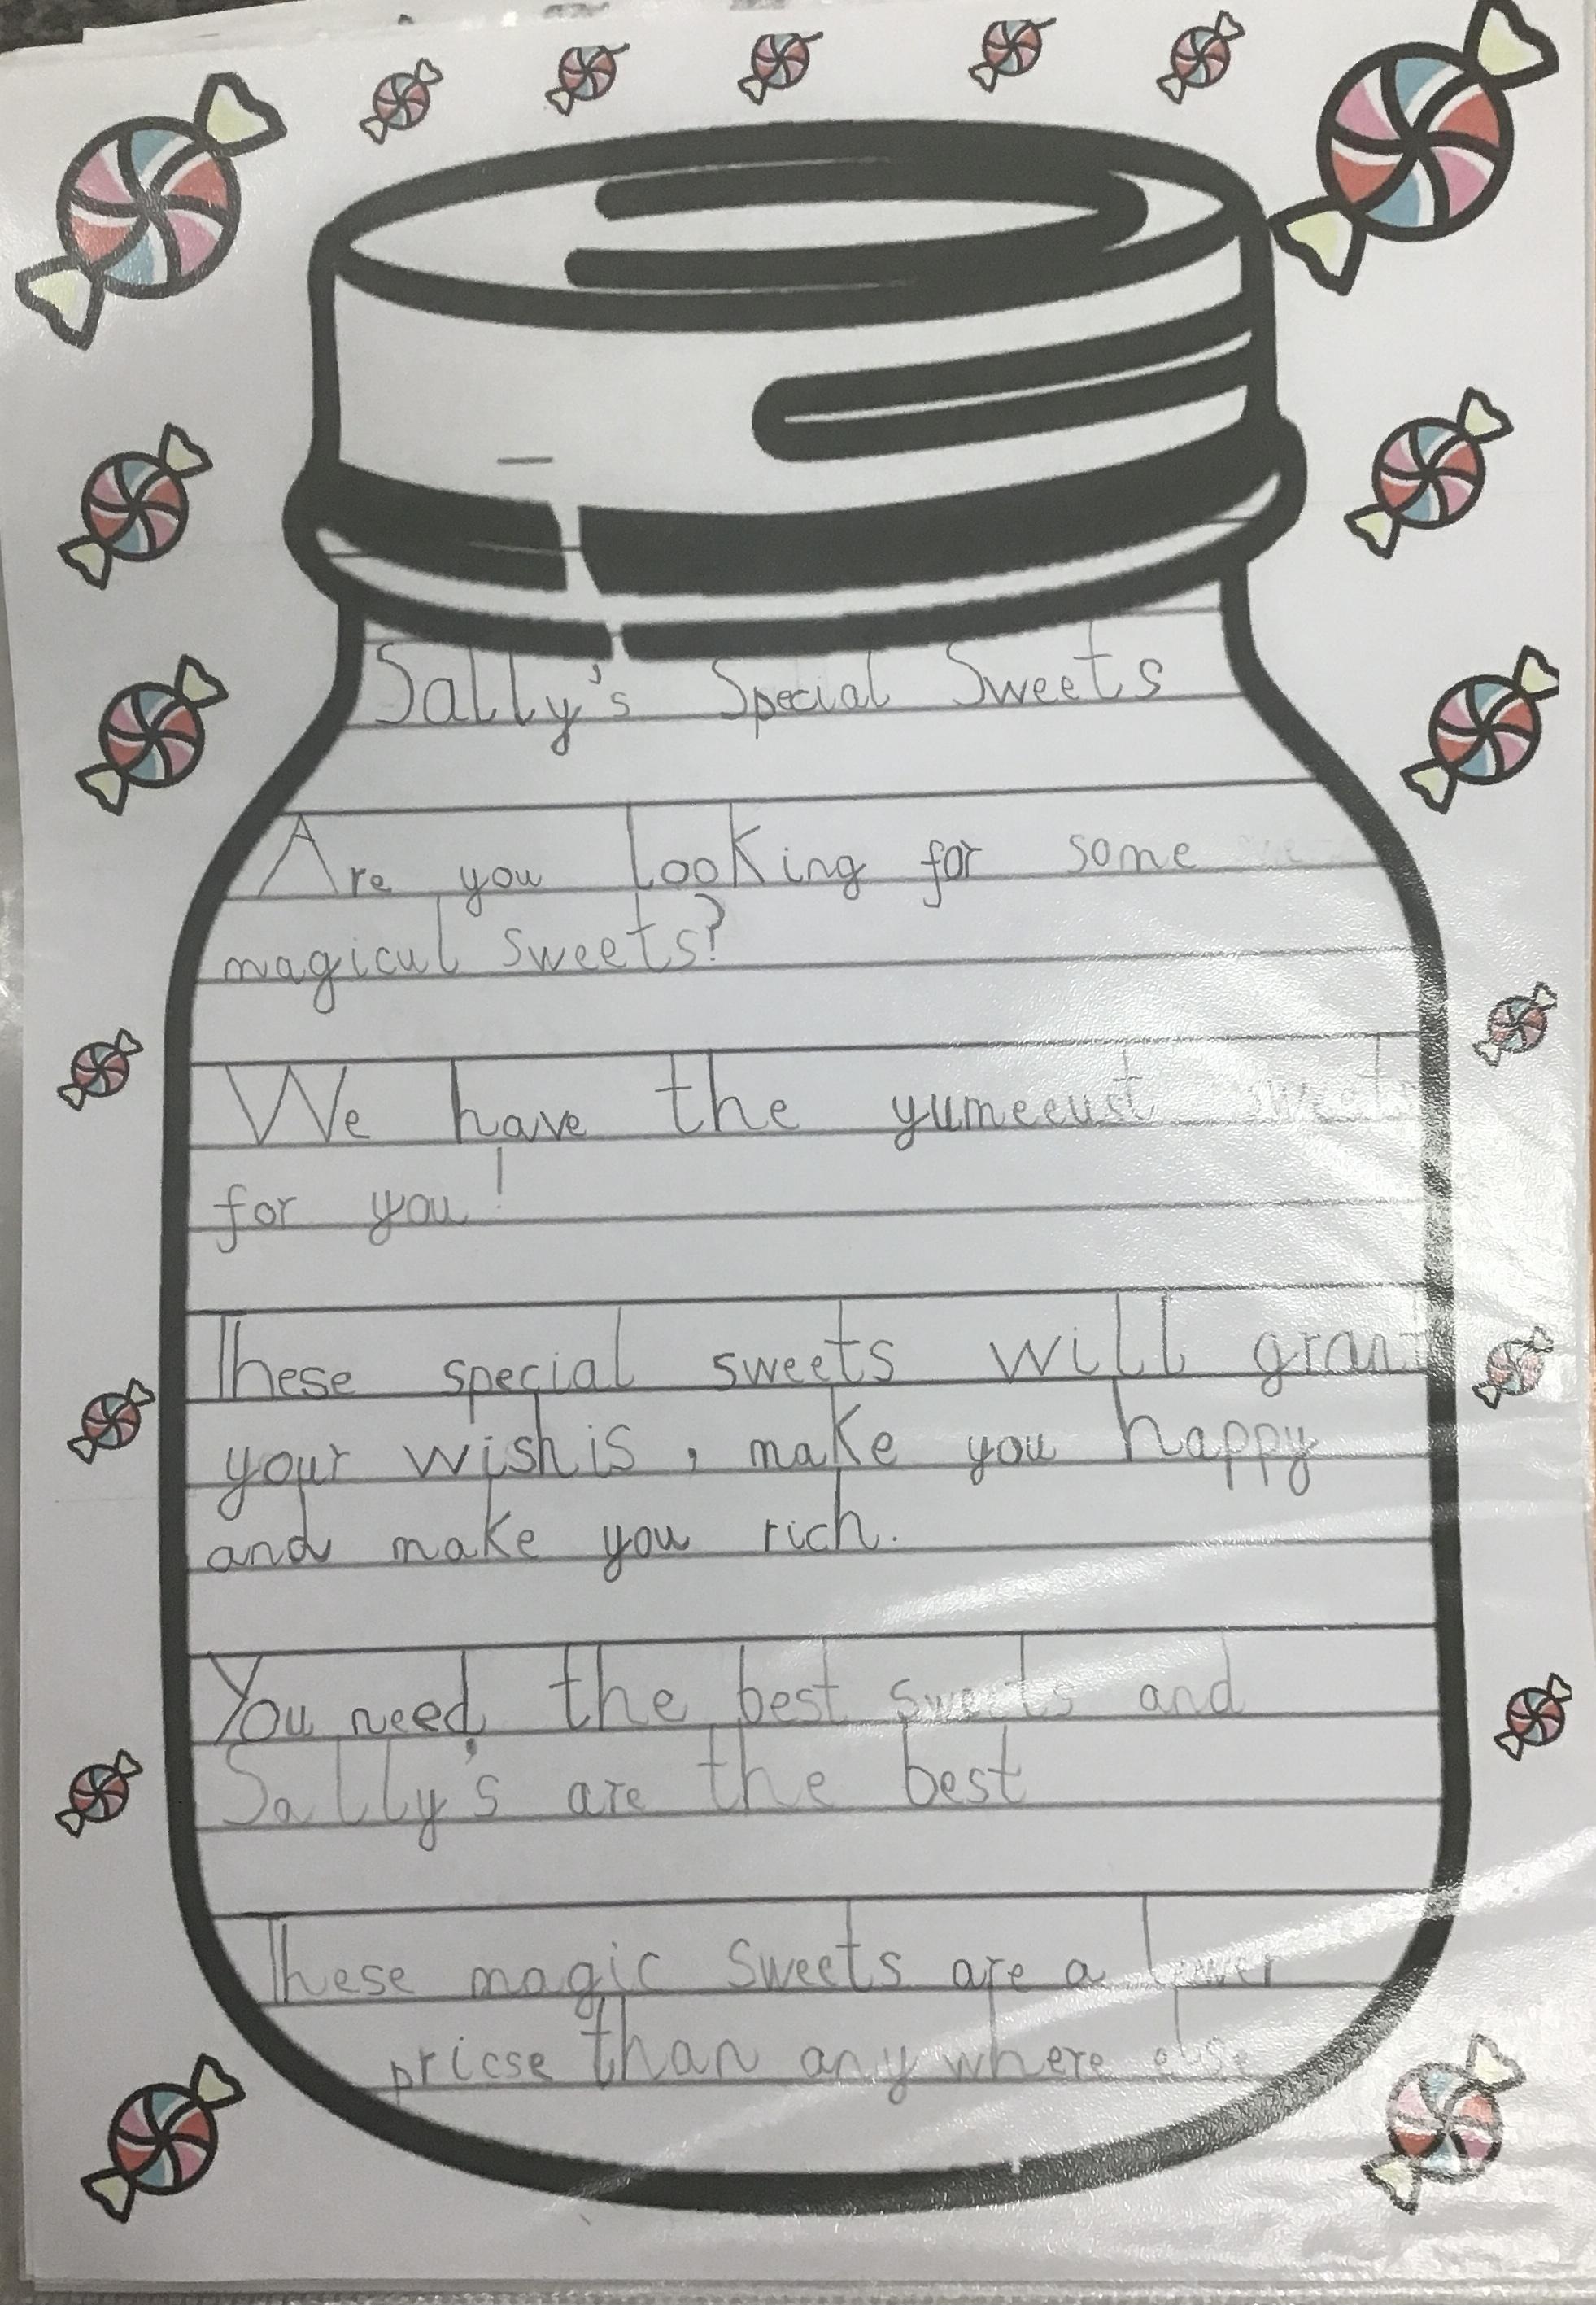 Sally's Special Sweets
Are you looking for some
magicul sweets?
We have the yumeeust sweets
for you!
These special sweets will grant
your wishis, make you happy
and make you rich.
You need the best sweets and
Sally's are the best
These magic sweets are a lower
pricse than any where else